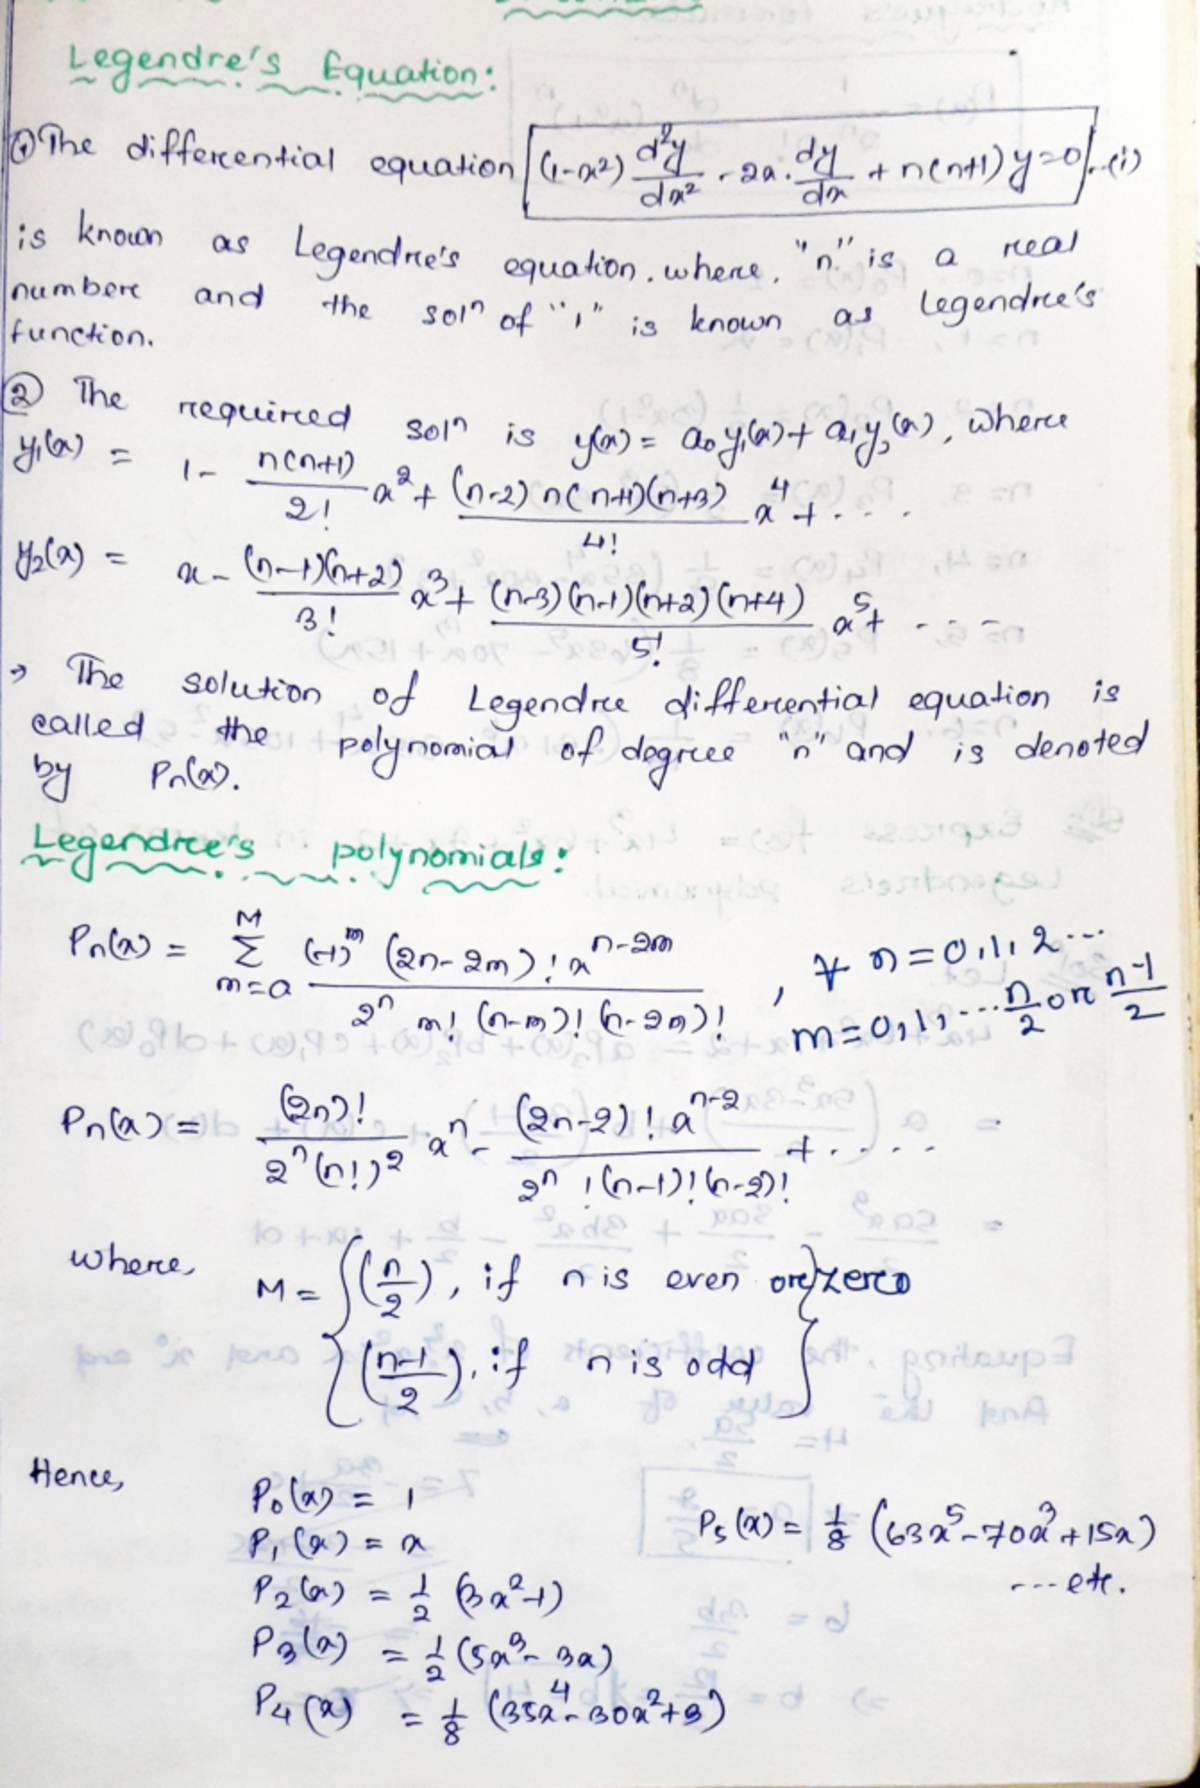 Legendre's Equation:
① The differential equation (1-x²) d²y/dx² - 2x. dy/dx + n(n+1) y=0 ..(i)
is known as Legendre's equation. where, "n" is a real
number and the solⁿ of "1" is known as Legendre's
function.
② The required solⁿ is y(x) = a₀y₁(x) + a₁y₂(x), where
y₁(x) = 1 - n(n+1)/2! x² + (n-2) n(n+1)(n+3)/4! x⁴ + ....
y₂(x) = x - (n-1)(n+2)/3! x³ + (n-3)(n-1)(n+2)(n+4)/5! x⁵ + ....
→ The solution of Legendre differential equation is
called the polynomial of degree "n" and is denoted
by Pn(x).
Legendre's polynomials:
Pn(x) = M Σ m=0 (-1)^m (2n-2m)! x^(n-2m) / 2ⁿ m! (n-m)! (n-2m)! , ∀ n=0,1,2...
m=0,1,...n/2 or n-1/2
Pn(x) = (2n)!/2ⁿ(n!)² xⁿ - (2n-2)! x^(n-2) / 2ⁿ !(n-1)!(n-2)! + ....
where, M = { (n/2), if n is even or zero
(n-1/2), if n is odd }
Hence,
P₀(x) = 1
P₁(x) = x
P₂(x) = 1/2 (3x²-1)
P₃(x) = 1/2 (5x³-3x)
P₄(x) = 1/8 (35x⁴-30x²+3)
P₅(x) = 1/8 (63x⁵-70x³+15x)
...etc.